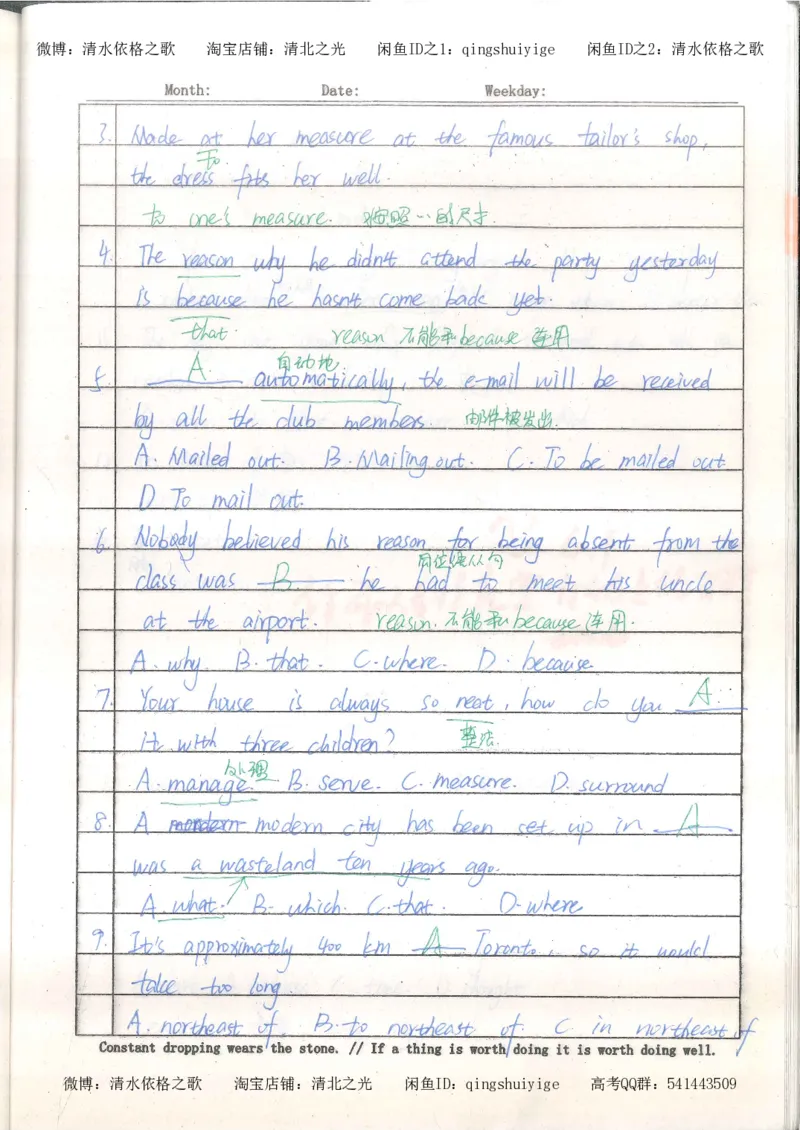 微博：清水依格之歌 淘宝店铺：清北之光 闲鱼ID之1：qingshuiyige 闲鱼ID之2：清水依格之歌
Month: Date: Weekday:
3. Made at her measure at the famous tailor's shop,
to
the dress fits her well.
to one's measure. 按照…的尺寸.
4. The reason why he didn't attend the party yesterday
is because he hasn't come back yet.
that. reason 不能和because连用
5. A. automatically, the e-mail will be received
自动地
by all the club members. 邮件被发出.
A. Mailed out. B. Mailing out. C. To be mailed out
D To mail out.
6. Nobody believed his reason for being absent from the
同位语从句
class was B he had to meet his uncle
at the airport. reason. 不能和because连用.
A. why. B. that. C. where. D. because.
7. Your house is always so neat, how do you A.
it with three children? 整洁.
处理
A. manage. B. serve. C. measure. D. surround
8. A modern city has been set up in A
was a wasteland ten years ago.
A. what. B. which. C. that. D. where
9. It's approximately 400 km A Toronto, so it would
take too long.
A. northeast of. B. to northeast of. C in northeast of
Constant dropping wears the stone. // If a thing is worth doing it is worth doing well.
微博：清水依格之歌 淘宝店铺：清北之光 闲鱼ID：qingshuiyige 高考QQ群：541443509